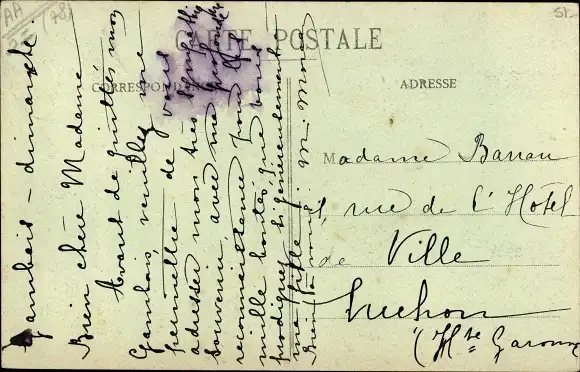 AA
(78)
CARTE POSTALE
CORRESPONDANCE
ADRESSE
Gambais - dimanche
Bien chère Madame
Avant de quitter mon
Gambais, veuillez me
permettre de vous
adresser mon très sympathique
souvenir avec ma profonde
reconnaissance pour les
mille bontés que vous
prodiguez si généreusement
ma fille
Madame Barrau
rue de l'Hôtel
de Ville
Luchon
(Hte Garonne